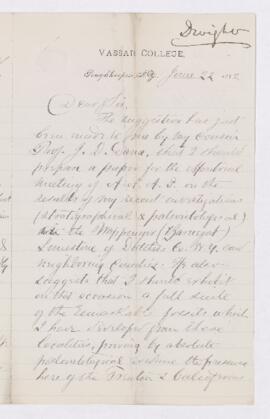 Dwight
VASSAR COLLEGE,
Poughkeepsie, N.Y. June 22
Dear Sir,
The suggestion has just
been made to me by my cousin
Prof. J. D. Dana, that I should
prepare a paper for the Montreal
meeting of A. A. A. S. on the
results of my recent investigations
(stratigraphical & paleontological)
in the Wappinger (Barnegat)
limestone of Dutchess Co. N.Y. and
neighboring Counties. He also
suggests that I should exhibit
on this occasion a full suite
of the remarkable fossils which
I have developed from these
localities, proving by absolute
paleontological evidence the presence
here of the Trenton & Calciferous